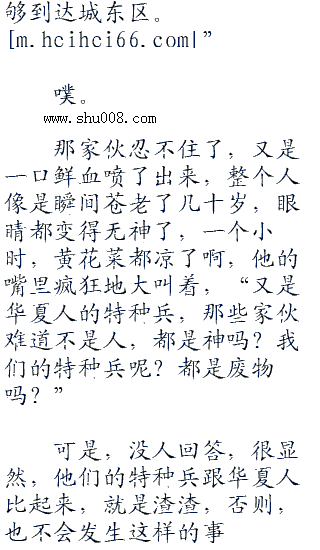 够到达城东区。
[m.hcihci66.com|”
噗。
www.shu008.com
那家伙忍不住了，又是
一口鲜血喷了出来，整个人
像是瞬间苍老了几十岁，眼
睛都变得无神了，一个小
时，黄花菜都凉了啊，他的
嘴里疯狂地大叫着，“又是
华夏人的特种兵，那些家伙
难道不是人，都是神吗？我
们的特种兵呢？都是废物
吗？”
可是，没人回答，很显
然，他们的特种兵跟华夏人
比起来，就是渣渣，否则，
也不会发生这样的事